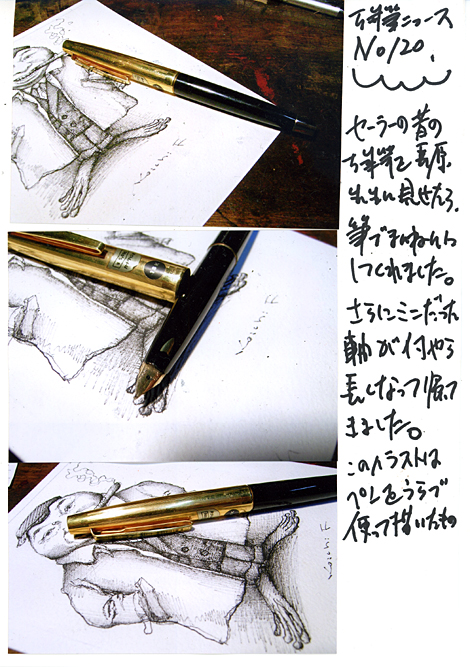 万年筆ニュース
No/20.
セーラーの昔の
万年筆を長原
さんに見せたら、
してくれました。
さらにミニだった
軸が付やら
長くなって帰って
きました。
このイラストは
ペンをうらで
使って描いたもの